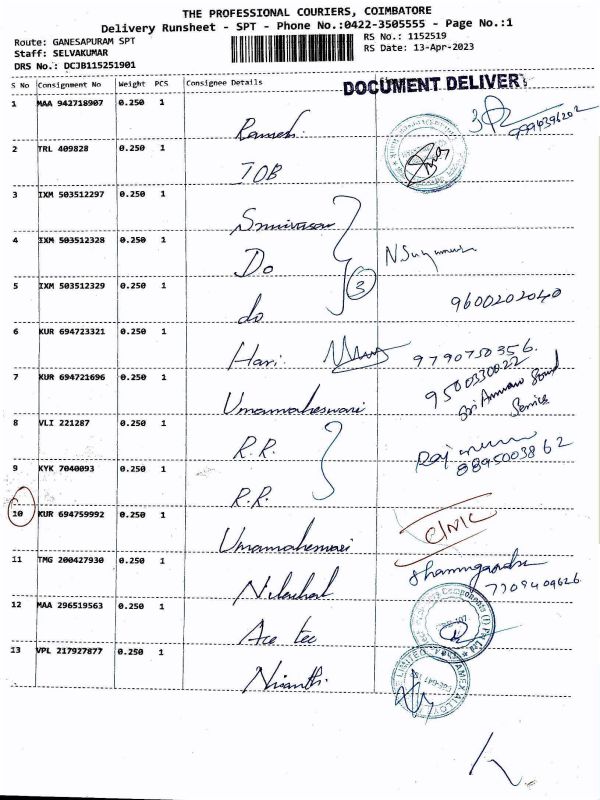 THE PROFESSIONAL COURIERS, COIMBATORE
Delivery Runsheet - SPT - Phone No.:0422-3505555 - Page No.:1
Route: GANESAPURAM SPT
RS No.: 1152519
Staff: SELVAKUMAR
RS Date: 13-Apr-2023
DRS No.: DCJB115251901
S No Consignment No Weight PCS Consignee Details
DOCUMENT DELIVERY
1 MAA 942718907 0.250 1 Ramesh.
2 TRL 409828 0.250 1 IOB
3 IXM 503512297 0.250 1 Srinivasan
4 IXM 503512328 0.250 1 Do
5 IXM 503512329 0.250 1 do 3 9600202040
6 KUR 694723321 0.250 1 Hari 9790750356.
7 KUR 694721696 0.250 1 Umamaheswari 9500330022
Service
8 VLI 221287 0.250 1 R.R.
9 KYK 7040093 0.250 1 R.R. 8895003862
10 KUR 694759992 0.250 1 Umamaheswari
11 TMG 200427930 0.250 1 7709409626
12 MAA 296519563 0.250 1 Ace tec
13 VPL 217927877 0.250 1